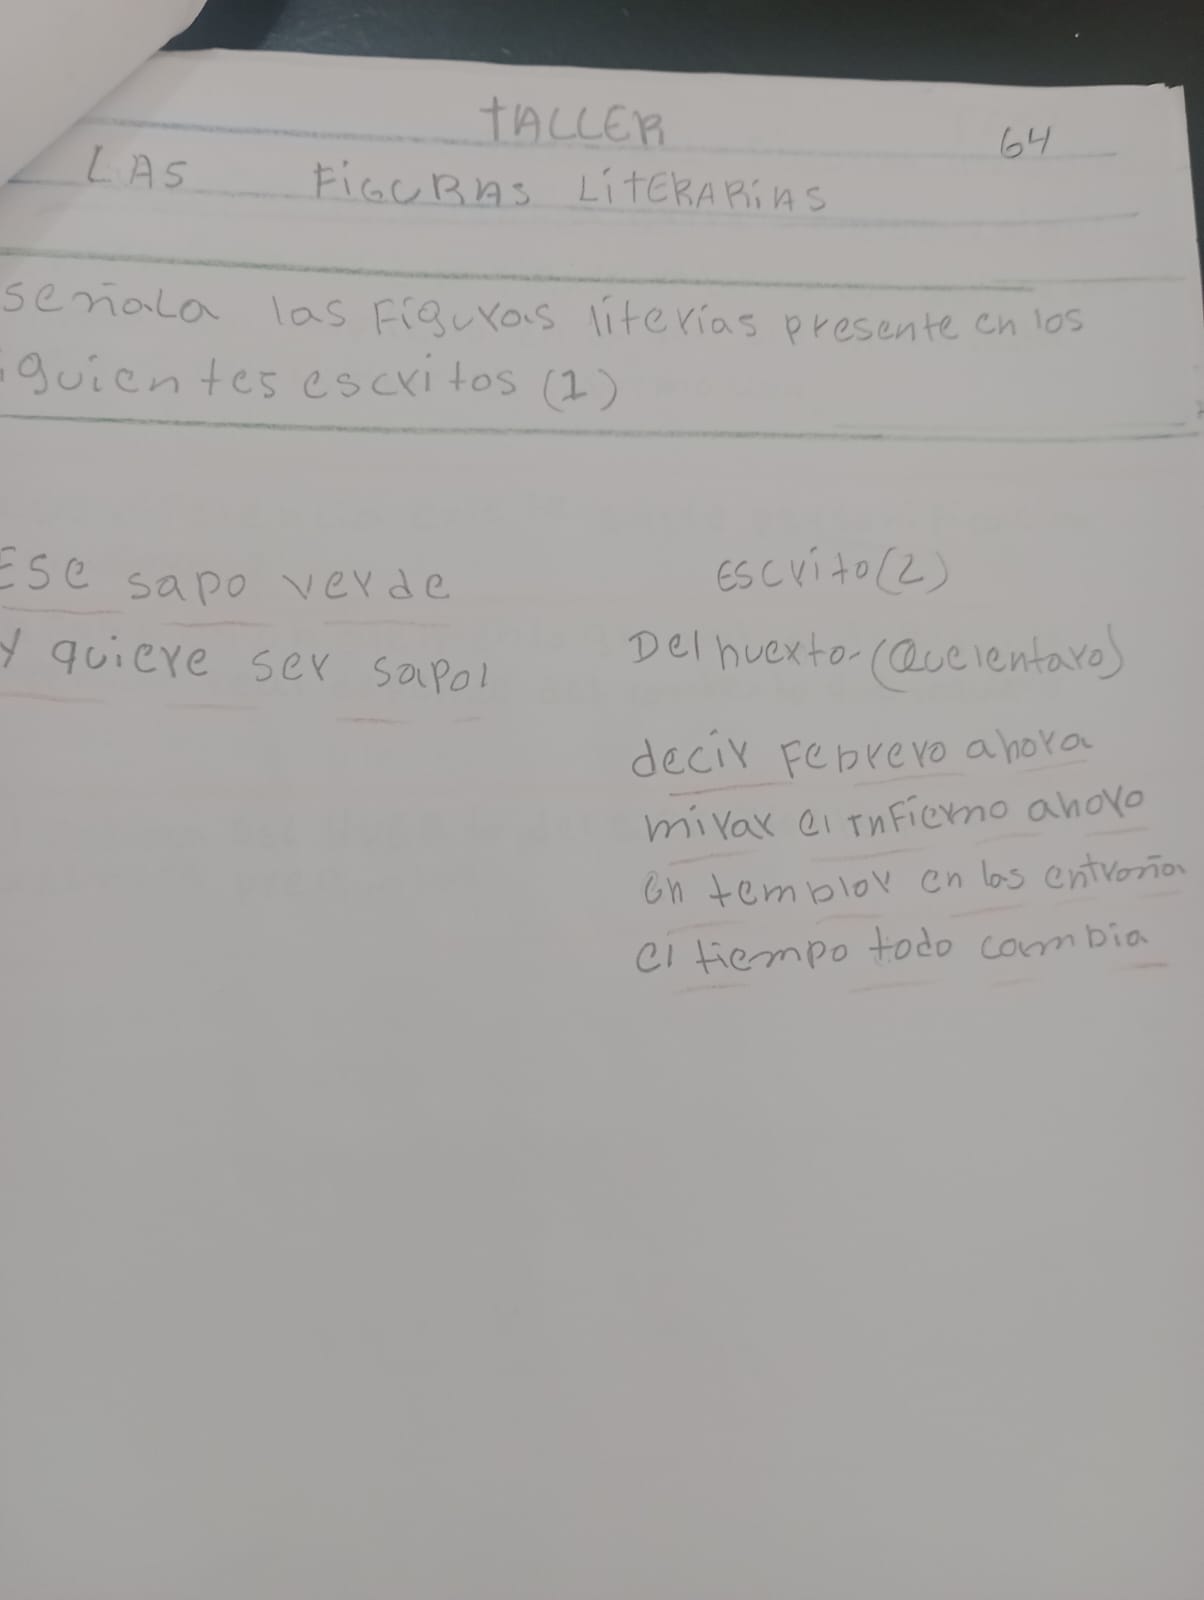 TALLER
64
LAS FIGURAS LITERARIAS
señala las Figuras literias presente en los
iguientes escritos (1)
Ese sapo verde
y quiere ser sapo!
Escrito (2)
Del huexto-
decir Febrero ahora
mirar el inFierno ahoro
en temblor en las entraña
el tiempo todo cambia